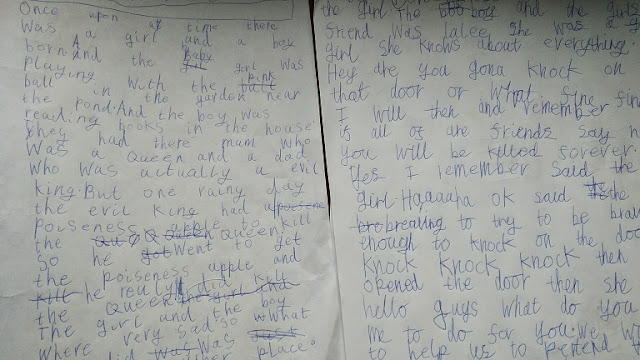 Once upon a time there
was a girl and a boy
born And the Baby girl was
playing with the pink
ball in the garden near
the pond. And the boy was
reading books in the house.
they had there mum who
was a Queen and a dad
who was actually a evil
king. But one rainy day
the evil king had a
poiseness apple to kill
the Queen
so he went to get
the poiseness apple and
he really did kill
the Queen
The girl and the boy
where very sad so what
place.
the girl the boy and the girls
friend was Lalee she was a
girl she knows about everything.
Hey are you gona knock on
that door or what fine fine
I will then and remember
is all of are friends say n
you will be killed forever.
Yes I remember said the
girl Haaaaha ok said the
breating to try to be brav
enough to knock on the doo
knock knock knock then
opened the door then she
hello guys what do you
me to do for you. we w
to help us to pretend